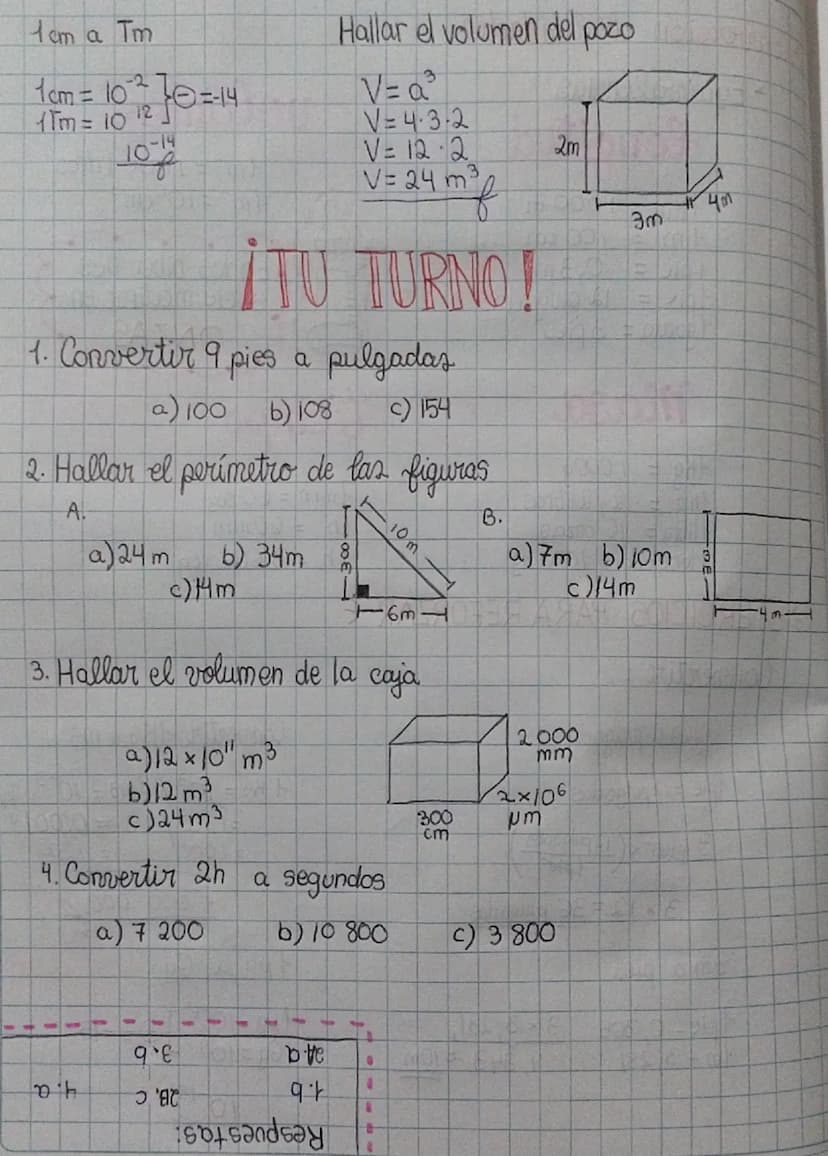 1cm a Tm
1cm = 10⁻² } ⊖ = -14
1Tm = 10¹²
10⁻¹⁴
Hallar el volumen del pozo
V = a³
V = 4·3·2
V = 12·2
V = 24 m³
2m
3m
4m
¡TU TURNO!
1. Convertir 9 pies a pulgadas
a) 100 b) 108 c) 154
2. Hallar el perimetro de las figuras
A.
a) 24m b) 34m
c) 14m
8m
10m
6m
B.
a) 7m b) 10m
c) 14m
3m
4m
3. Hallar el volumen de la caja
a) 12 × 10¹¹ m³
b) 12 m³
c) 24 m³
2000
mm
2×10⁶
μm
300
cm
4. Convertir 2h a segundos
a) 7 200 b) 10 800 c) 3 800
Respuestas:
1. b 2B. c 4. a
2A. a 3. b